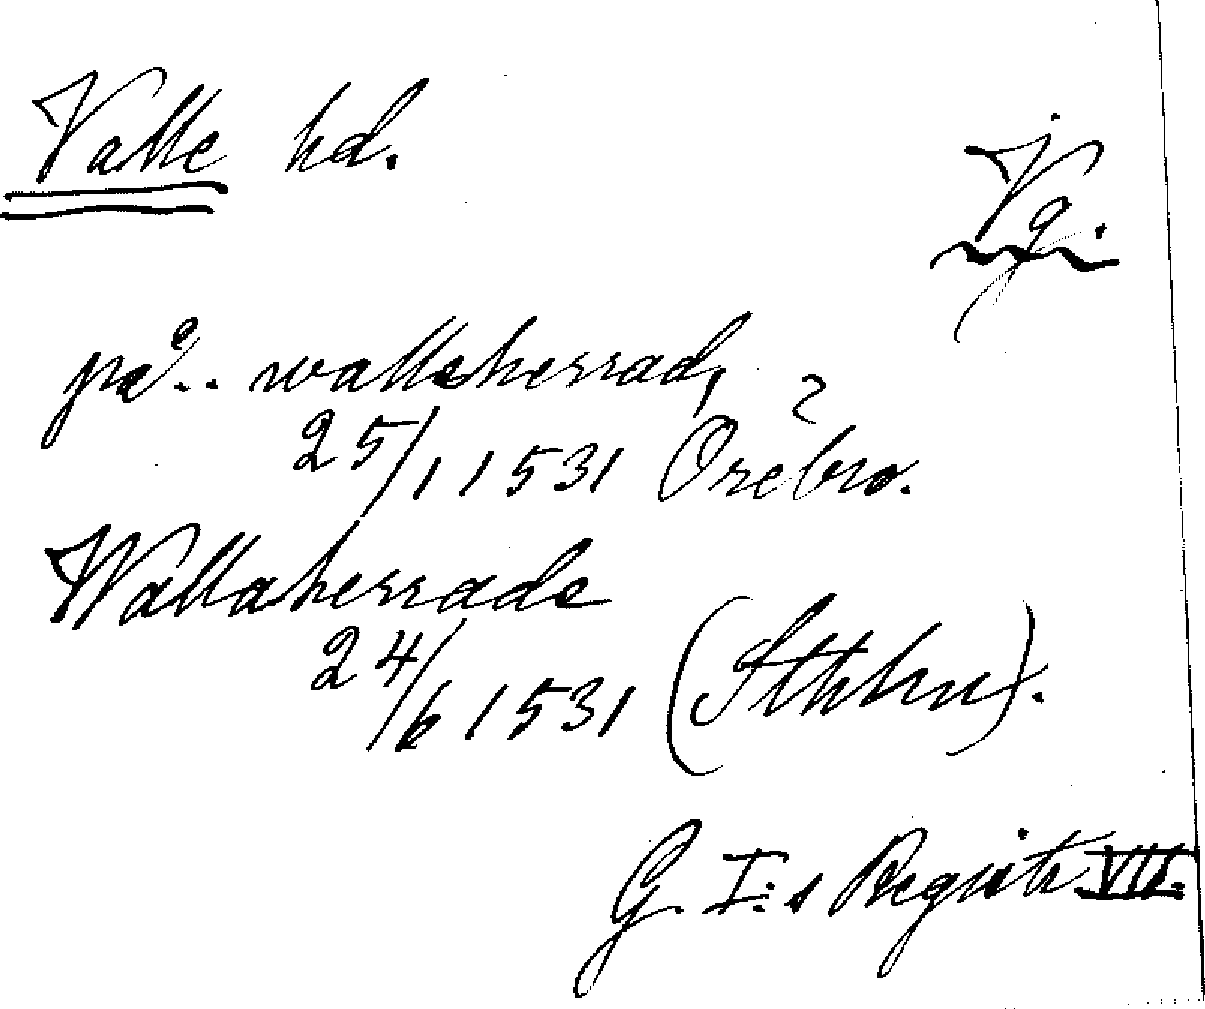 Valle hd.
Vg.
på.. walleherrad,
25/1 1531 Örebro.
Wallaherrade
24/6 1531 (Sthlm).
G. I:s Registr. VII.